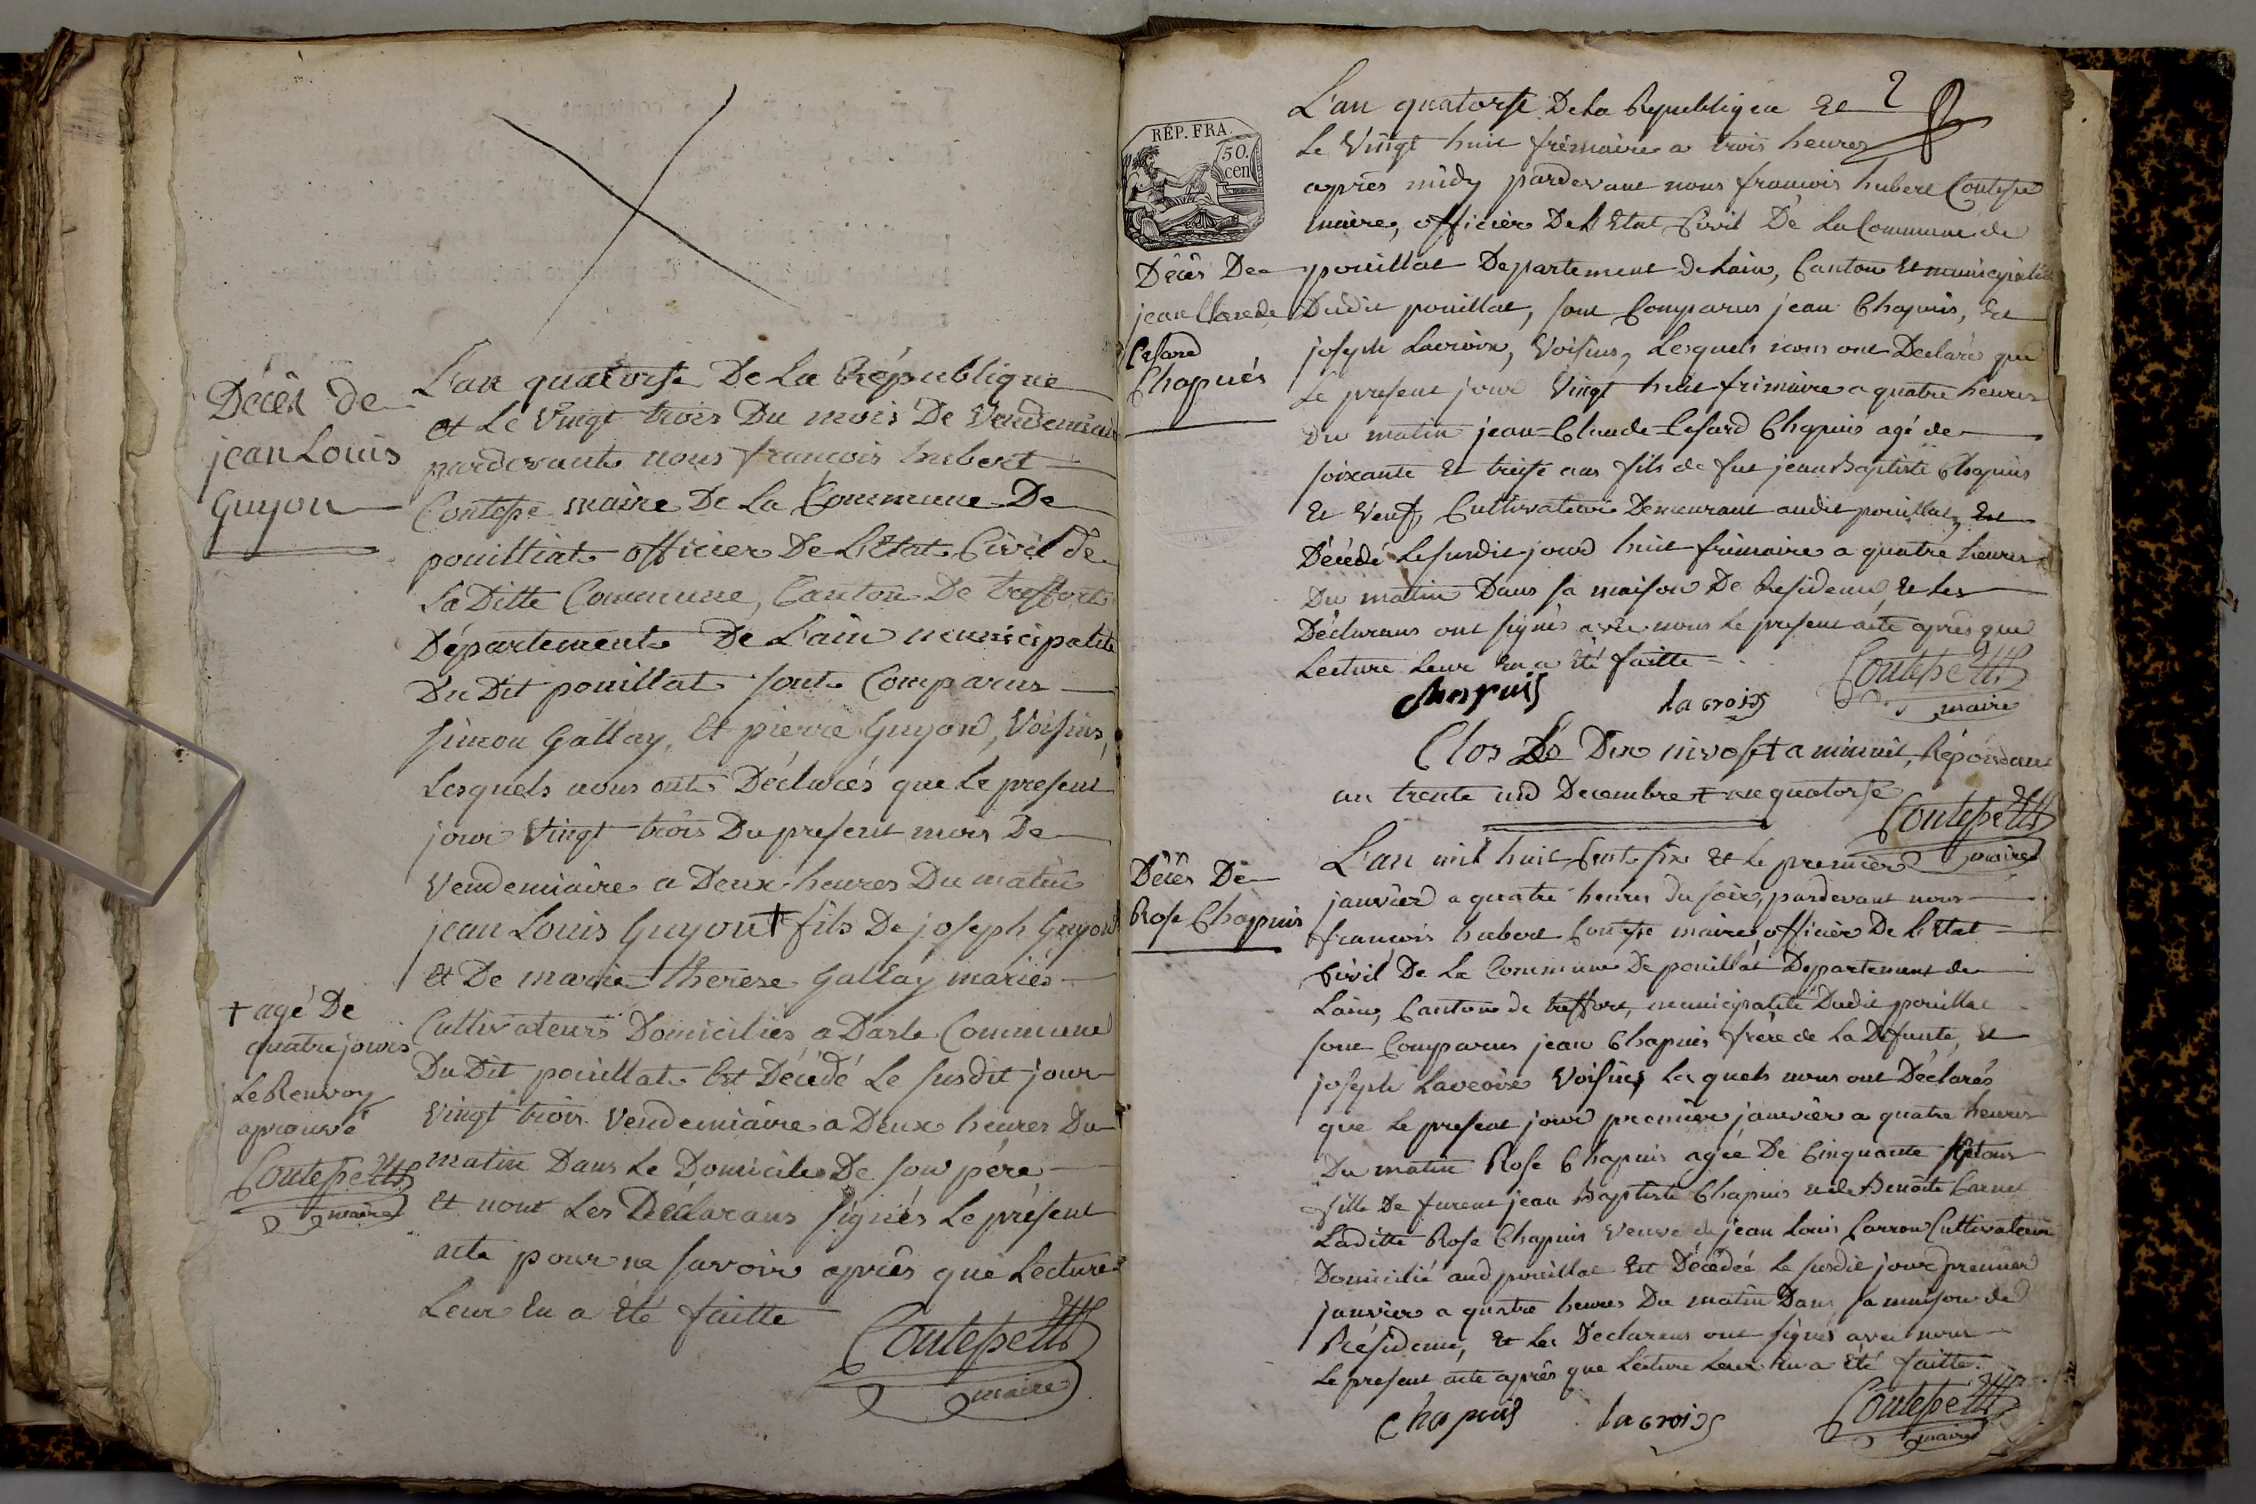 Décès de
jean Louis
Guyon
L'an quatorse De La République
et Le Vingt trois Du mois De Vendemiaire
pardevant nous francois hubert
Contesse maire De La Commune De
pouilliat officier De L'Etat Civil de
La Ditte Commune, Canton De treffort
Département De L'ain municipalité
Du Dit pouillat sont Comparus
simon Gallay, et pierre Guyon, Voisins,
Lesquels nous ont Déclarés que Le present
jour Vingt trois Du present mois De
Vendemiaire a Deux heures Du matin
jean Louis Guyon + fils De joseph Guyon
et De marie therese Gallay mariés
Cultivateurs Domiciliés a Dasle Commune
Du Dit pouillat Est Décédé Le susdit jour
Vingt trois Vendemiaire a Deux heures Du
matin Dans Le Domicile De son père,
et nont Les Déclarans signés Le présent
acte pour ne savoir après que Lecture
Leur En a Eté faitte
+ agé De
quatre jours
Le Renvoy
aprouvé
maire
maire
REP. FRA.
50.
cen
2
L'an quatorse De La Republique Et
Le Vingt huit frimaire a trois heures
après midy pardevant nous francois hubert Contesse
maire, officier De L'Etat Civil De La Commune de
pouillat Departement de Lain, Canton Et municipalité
Dudit pouillat, sont Comparus jean Chapuis, Et
joseph Lacroix, Voisins, Lesquels nous ont Declaré que
Le present jour Vingt huit frimaire a quatre heures
Du matin jean-Claude-Cesard Chapuis agé de
soixante Et treise ans fils de fut jean Baptiste Chapuis
Et Veuf, Cultivateur Demeurant audit pouillat, Est
Décédé Le susdit jour huit frimaire a quatre heures
Du matin Dans sa maison De Residence Et Les
Déclarans ont signés avec nous Le present acte après que
Lecture Leur En a Eté faitte
Décès De
jean Claude
Cesard
Chapuis
chapuis lacroix
maire
Clos Le Dix nivose + a minuit, Répondant
au trente un Decembre + an quatorse
maire
Décès De
Rose Chapuis
L'an mil huit Cent six Et Le premier
janvier a quatre heures du soir, pardevant nous
francois hubert Contesse maire, officier De L'Etat
Civil De La Commune De pouillat Departement de
Lain, Canton de treffort, municipalité Dudit pouillat
sont Comparus jean Chapuis frere de La Defunte, Et
joseph Lacroix Voisins, Lesquels nous ont Déclarés
que Le present jour premier janvier a quatre heures
Du matin Rose Chapuis agée De Cinquante sept ans
fille De furent jean Baptiste Chapuis Benoite
Laditte Rose Chapuis Veuve de jean Louis Carron Cultivateur
Domicilié aud pouillat Est Décédée Le susdit jour premier
janvier a quatre heures Du matin Dans sa maison de
Résidence, Et Les Déclarans ont signés avec nous
Le present acte après que Lecture Leur En a Eté faitte
chapuis lacroix
maire